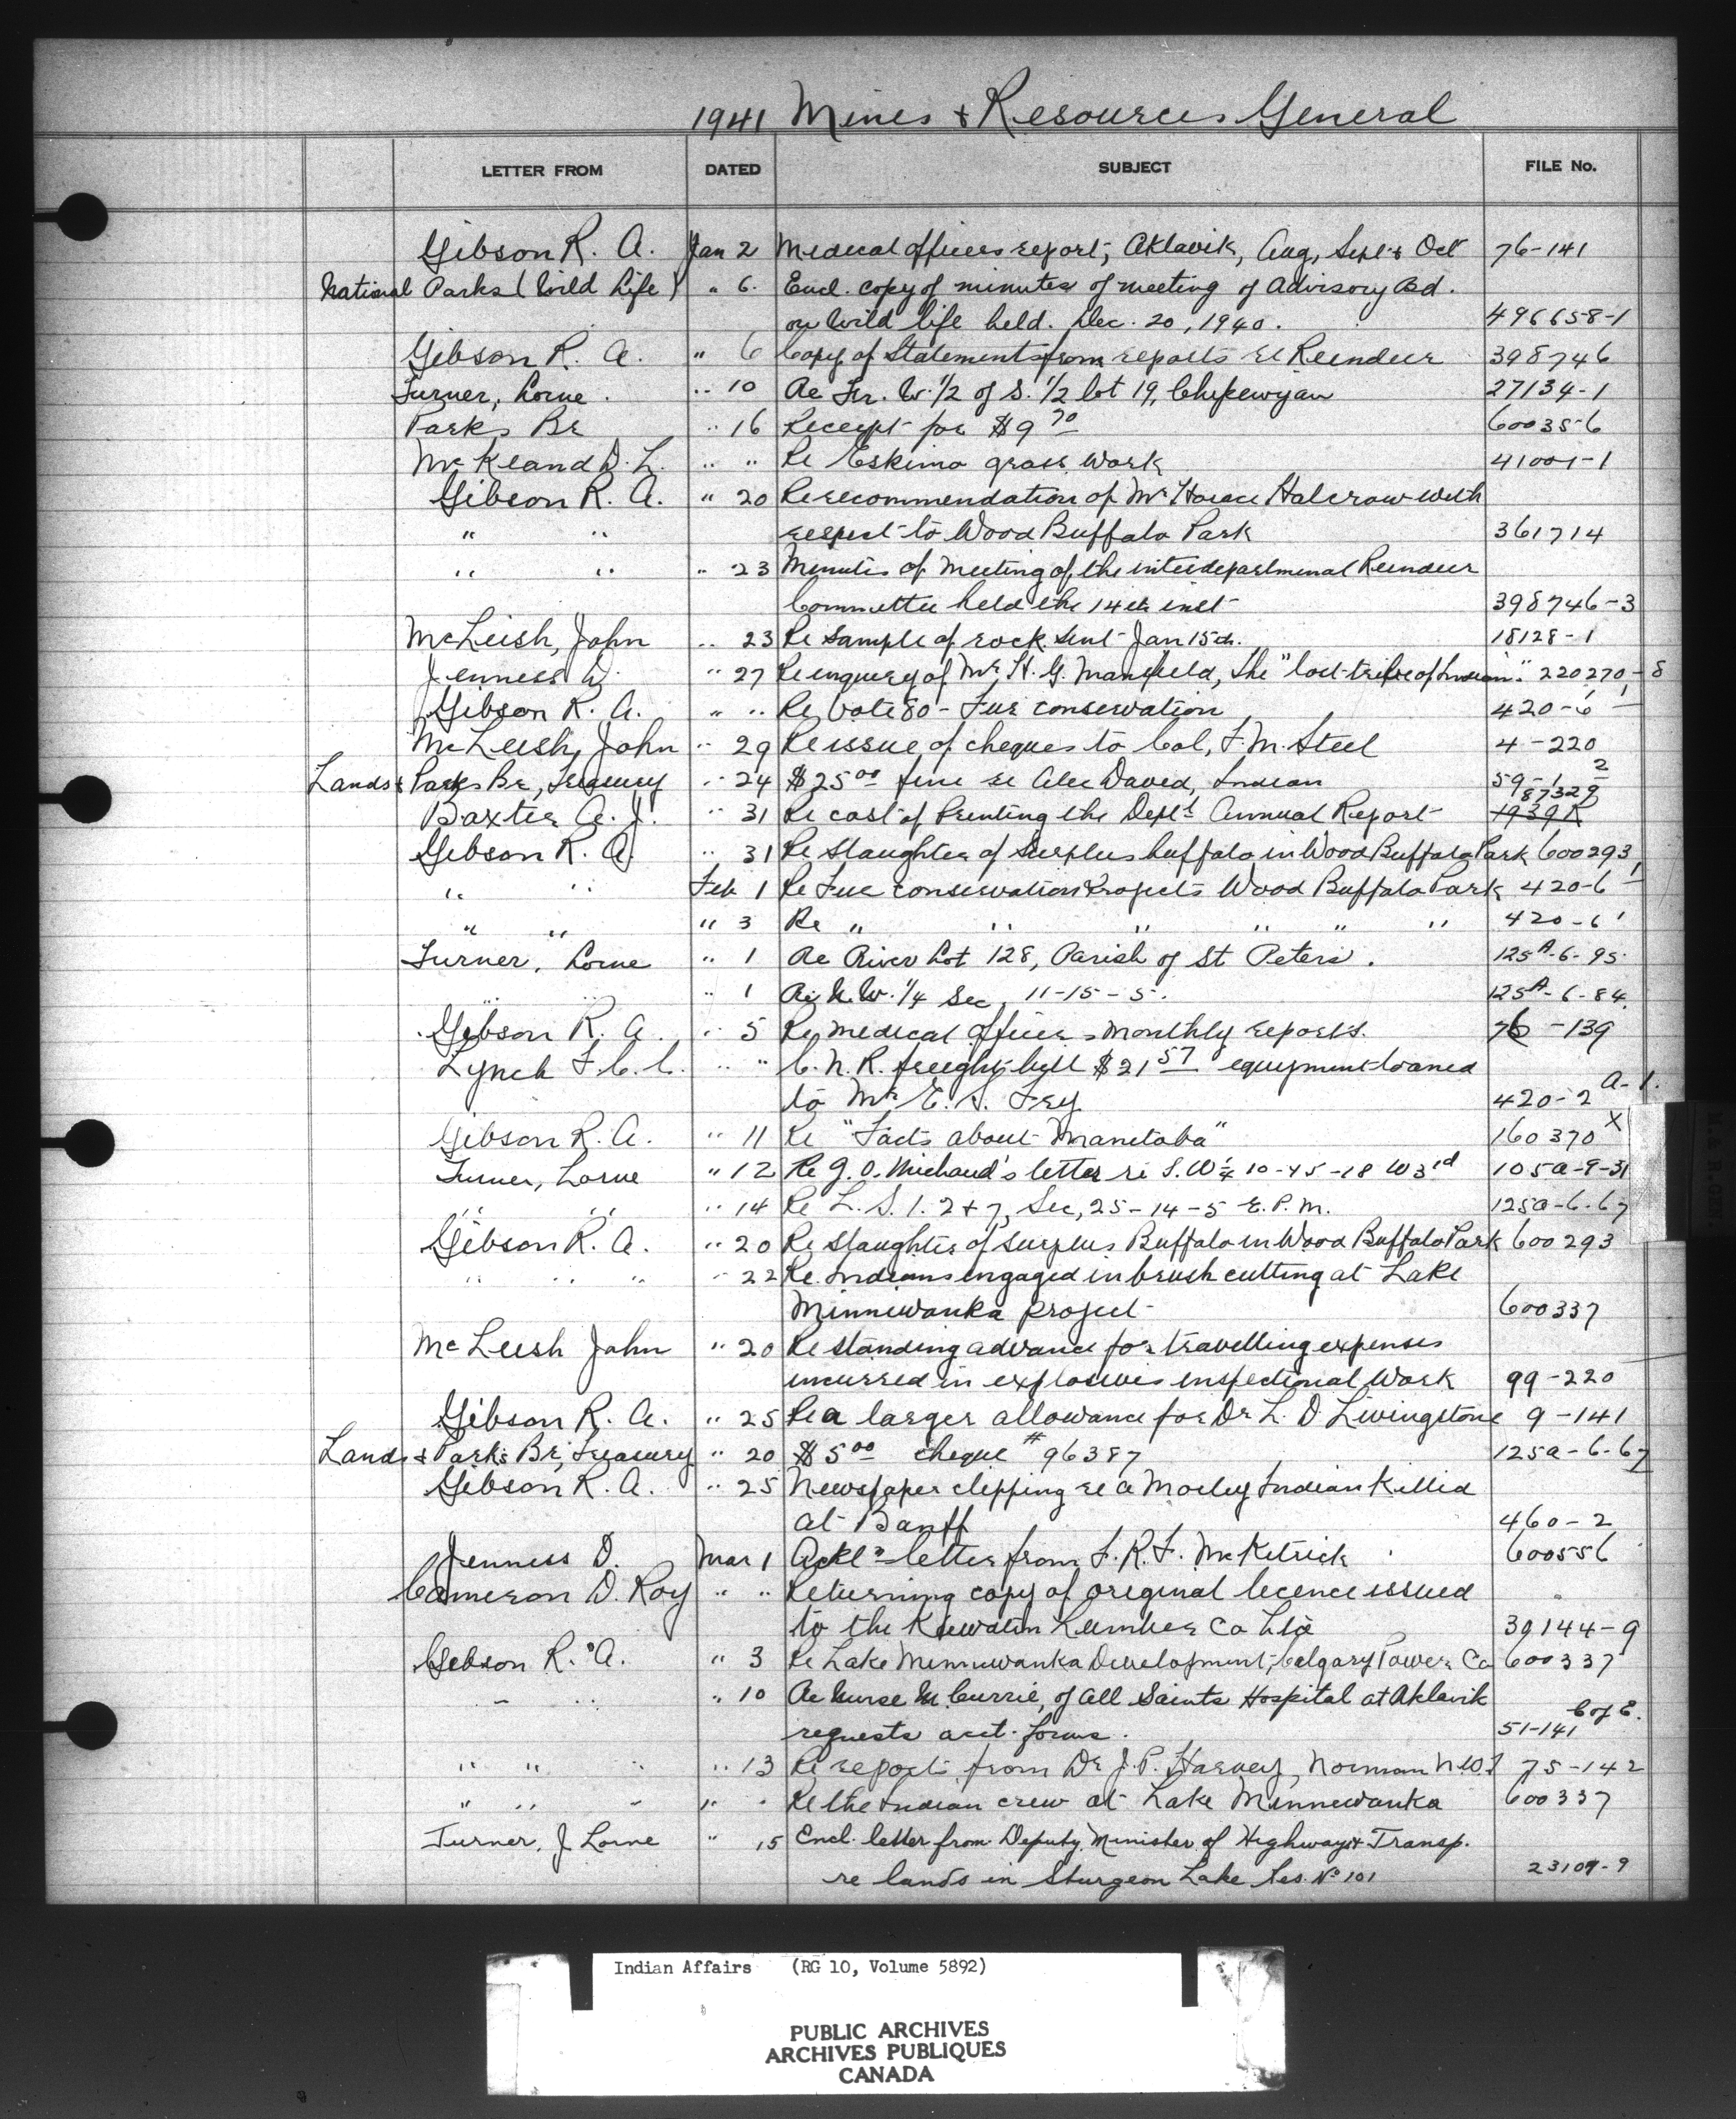 1941 Mines & Resources General
LETTER FROM DATED SUBJECT FILE No.
Gibson R. A. Jan 2 Medical officers report, Aklavik, Aug, Sept & Oct 76-141
National Parks (Wild Life) " 6. Encl. copy of minutes of meeting of Advisory Bd.
on Wild life held. Dec. 20, 1940. 496658-1
Gibson R. A. " 6 Copy of Statements from reports re Reindeer 398746
Turner, Lorne. " 10 Re Fr. W. 1/2 of S. 1/2 lot 19, Chipewyan 27134-1
Parks Br " 16 Receipt for $9 70 60035-6
McKeand D. L. " " Re Eskimo grass work 41001-1
Gibson R. A. " 20 Re recommendation of Mr Horace Halcrow with
" " respect to Wood Buffalo Park 361714
" " " 23 Minutes of Meeting of the interdepartmenal Reindeer
Committee held the 14th inst 398746-3
McLeish, John " 23 Re Sample of rock sent Jan 15th. 18128-1
Jenness D. " 27 Re inquery of Mr. H. G. Mansfield, the "lost tribe of Indian." 220270-8
Gibson R. A. " " Re Vote 80 - Fur conservation 420-6-1
McLeish, John " 29 Re issue of cheques to Col, F. M. Steel 4-220
Lands & Parks Br, Treasury " 24 $25 00 fine re Alec David, Indian 59-1 2
Baxter A. J. " 31 Re cost of Printing the Dept's Annual Report 87329 1939K
Gibson R. A. " 31 Re Slaughter of Surplus buffalo in Wood Buffalo Park 600293
" " Feb 1 Re Fur conservation Projects Wood Buffalo Park 420-6-1
" " " 3 Re " " " " " " 420-6 1
Turner, Lorne " 1 Re River Lot 128, Parish of St Peters. 125A-6-95
" " " 1 Re N.W. 1/4 Sec, 11-15-5. 125A-6-84.
Gibson R. A. " 5 Re medical officers monthly reports. 76-139
Lynch F. C. C. " " C. N. R. freight bill $21 57 equipment loaned
to Mr E. S. Fry 420-2 A-1.
Gibson R. A. " 11 Re "Facts about Manitoba" 160370 X
Turner, Lorne " 12 Re J. O. Michaud's letter re S.W 1/4 10-45-18 W 3rd 105a-9-31
" " " 14 Re L. S. 1. 2 + 7, Sec, 25-14-5 E. P. M. 125a-6-67
Gibson R. A. " 20 Re Slaughter of surplus Buffalo in Wood Buffalo Park 600293
" " " " 22 Re. Indians engaged in brush cutting at Lake
Minnewanka project 600337
McLeish John " 20 Re standing advance for travelling expenses
incurred in explosives inspectional Work 99-220
Gibson R. A. " 25 Re a larger allowance for Dr L. D Livingstone 9-141
Lands & Parks Br, Treasury " 20 $5 00 cheque # 96387 125a-6-67
Gibson R. A. " 25 Newspaper clipping re a Morley Indian Killed
at Banff 460-2
Jenness D. Mar 1 Ackl'g letter from F. R. F. McKitrick 600556
Cameron D. Roy " " Returning copy of original licence issued
to the Keewatin Lumber Co Ltd 39144-9
Gibson R. A. " 3 Re Lake Minnewanka Development, Calgary Power Co 600337
" " " 10 Re Nurse M. Currie, of All Saints Hospital at Aklavik
requests acct. forms. 51-141 C of E.
" " " " 13 Re reports from Dr J. P. Harvey, Norman N.W.T 75-142
" " " " " Re the Indian crew at Lake Minnewanka 600337
Turner, J Lorne " 15 Encl. letter from Deputy Minister of Highways & Transp.
re lands in Sturgeon Lake Res. No 101 23109-9
Indian Affairs (RG 10, Volume 5892)
PUBLIC ARCHIVES
ARCHIVES PUBLIQUES
CANADA